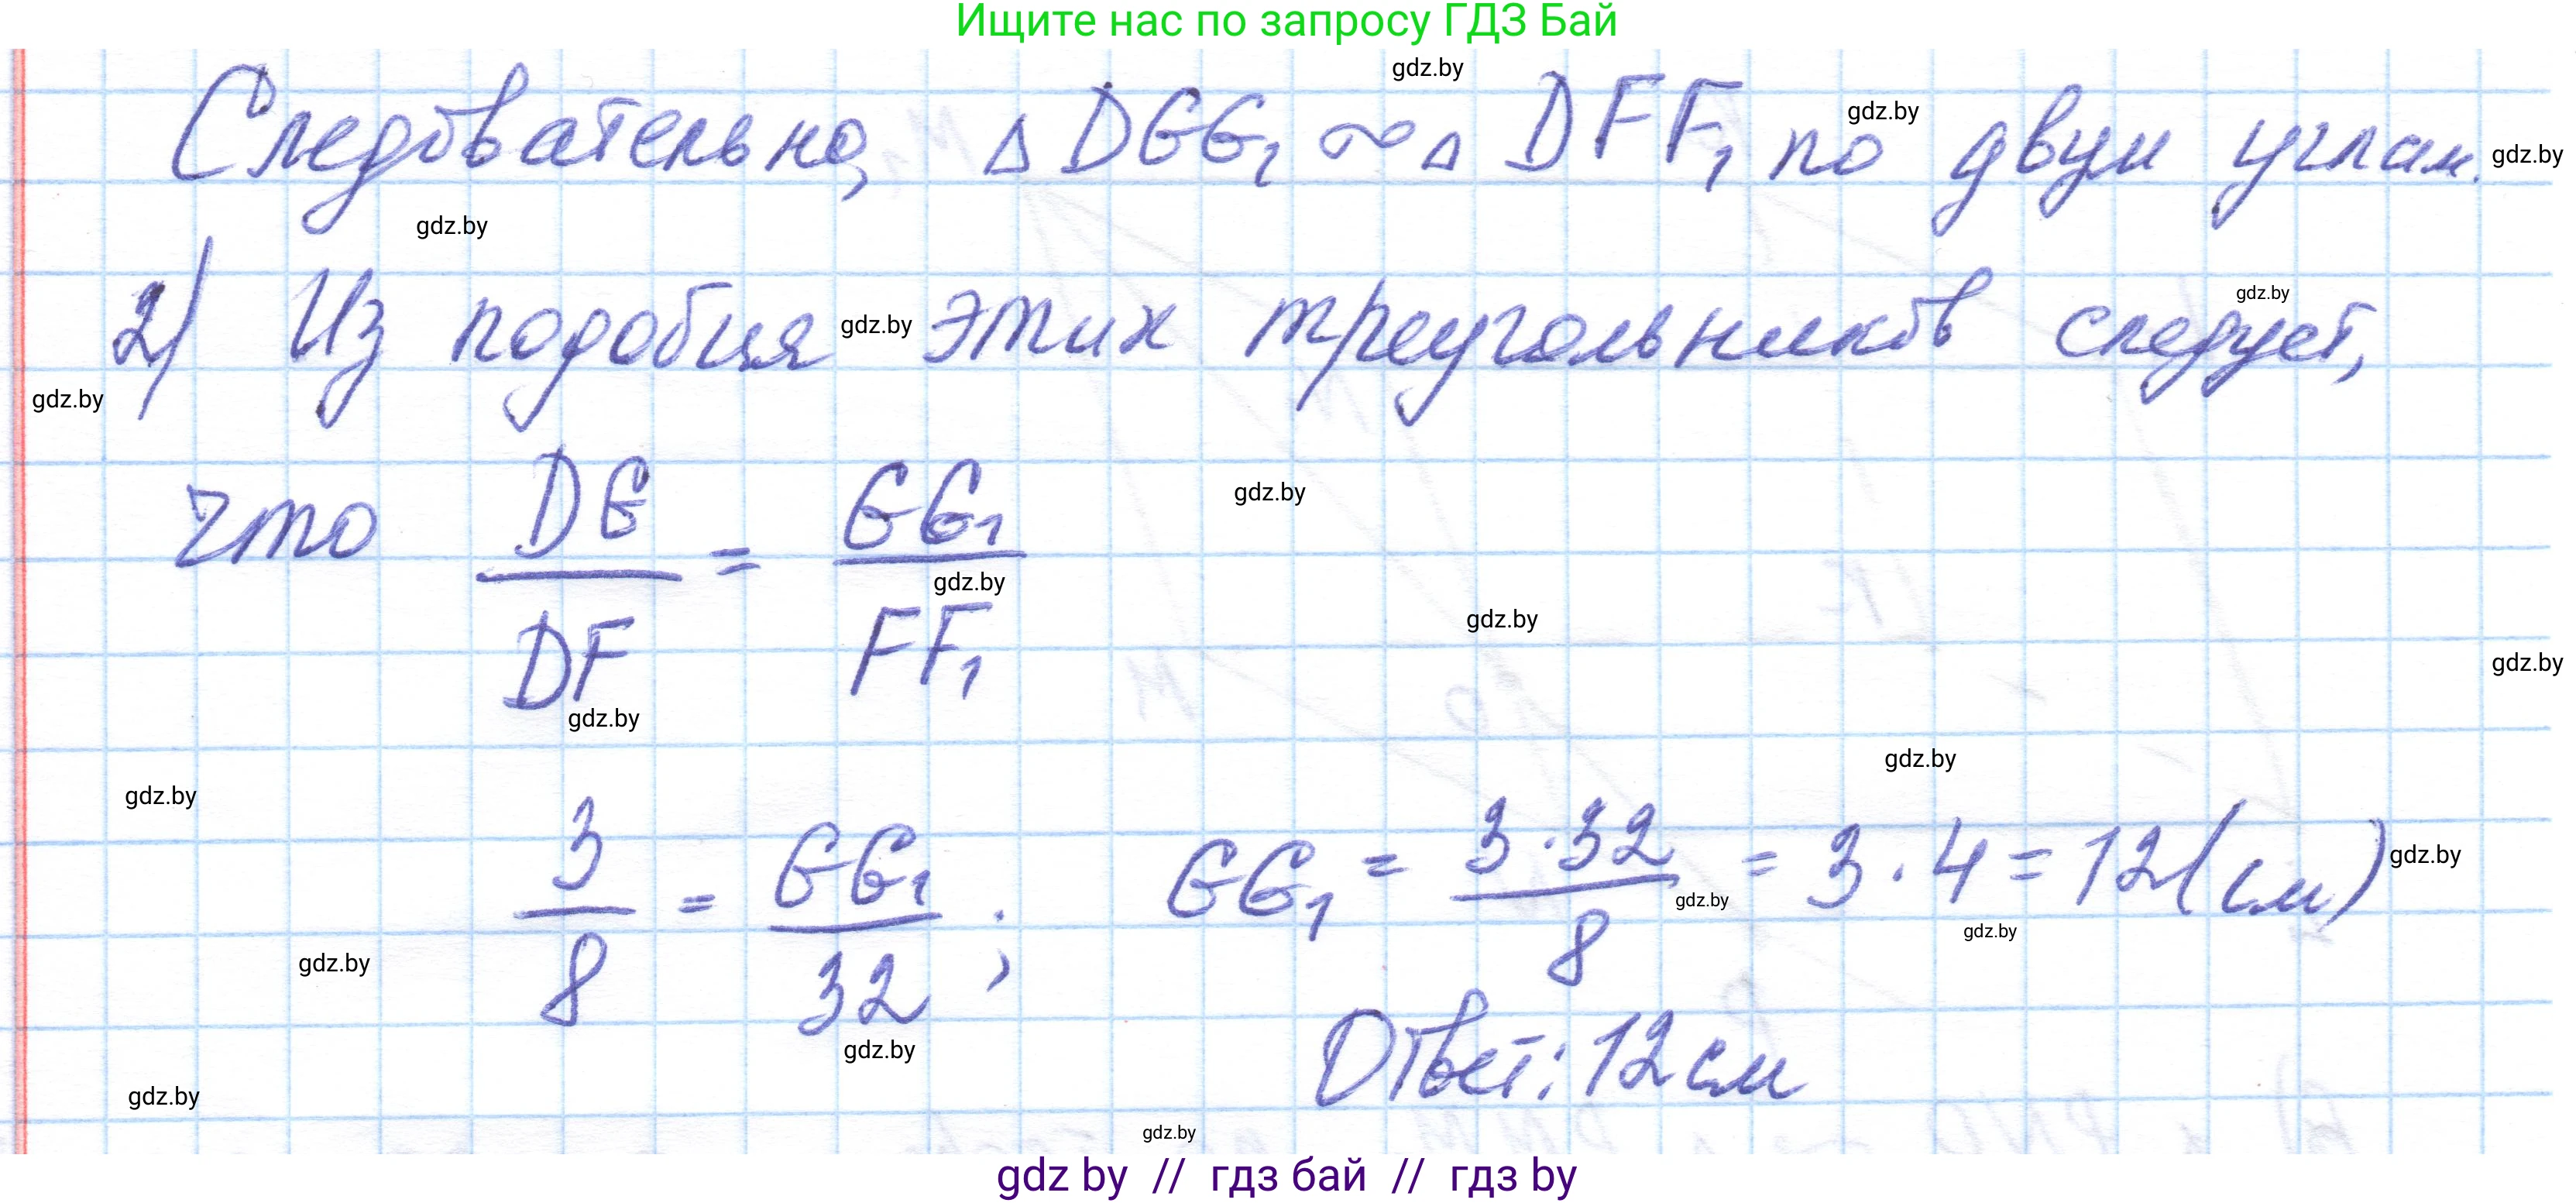 Ищите нас по запросу ГДЗ Бай
gdz.by
Следовательно, △ DGG₁ ~ △ DFF₁ по двум углам.
gdz.by
gdz.by
gdz.by
2) Из подобия этих треугольников следует,
gdz.by
gdz.by
gdz.by
что DG/DF = GG₁/FF₁
gdz.by
gdz.by
gdz.by
gdz.by
gdz.by
gdz.by
gdz.by
3/8 = GG₁/32; GG₁ = 3·32/8 = 3·4 = 12(см)
gdz.by
gdz.by
gdz.by
gdz.by
gdz.by
Ответ: 12 см
gdz.by
gdz.by
gdz by // гдз бай // гдз by